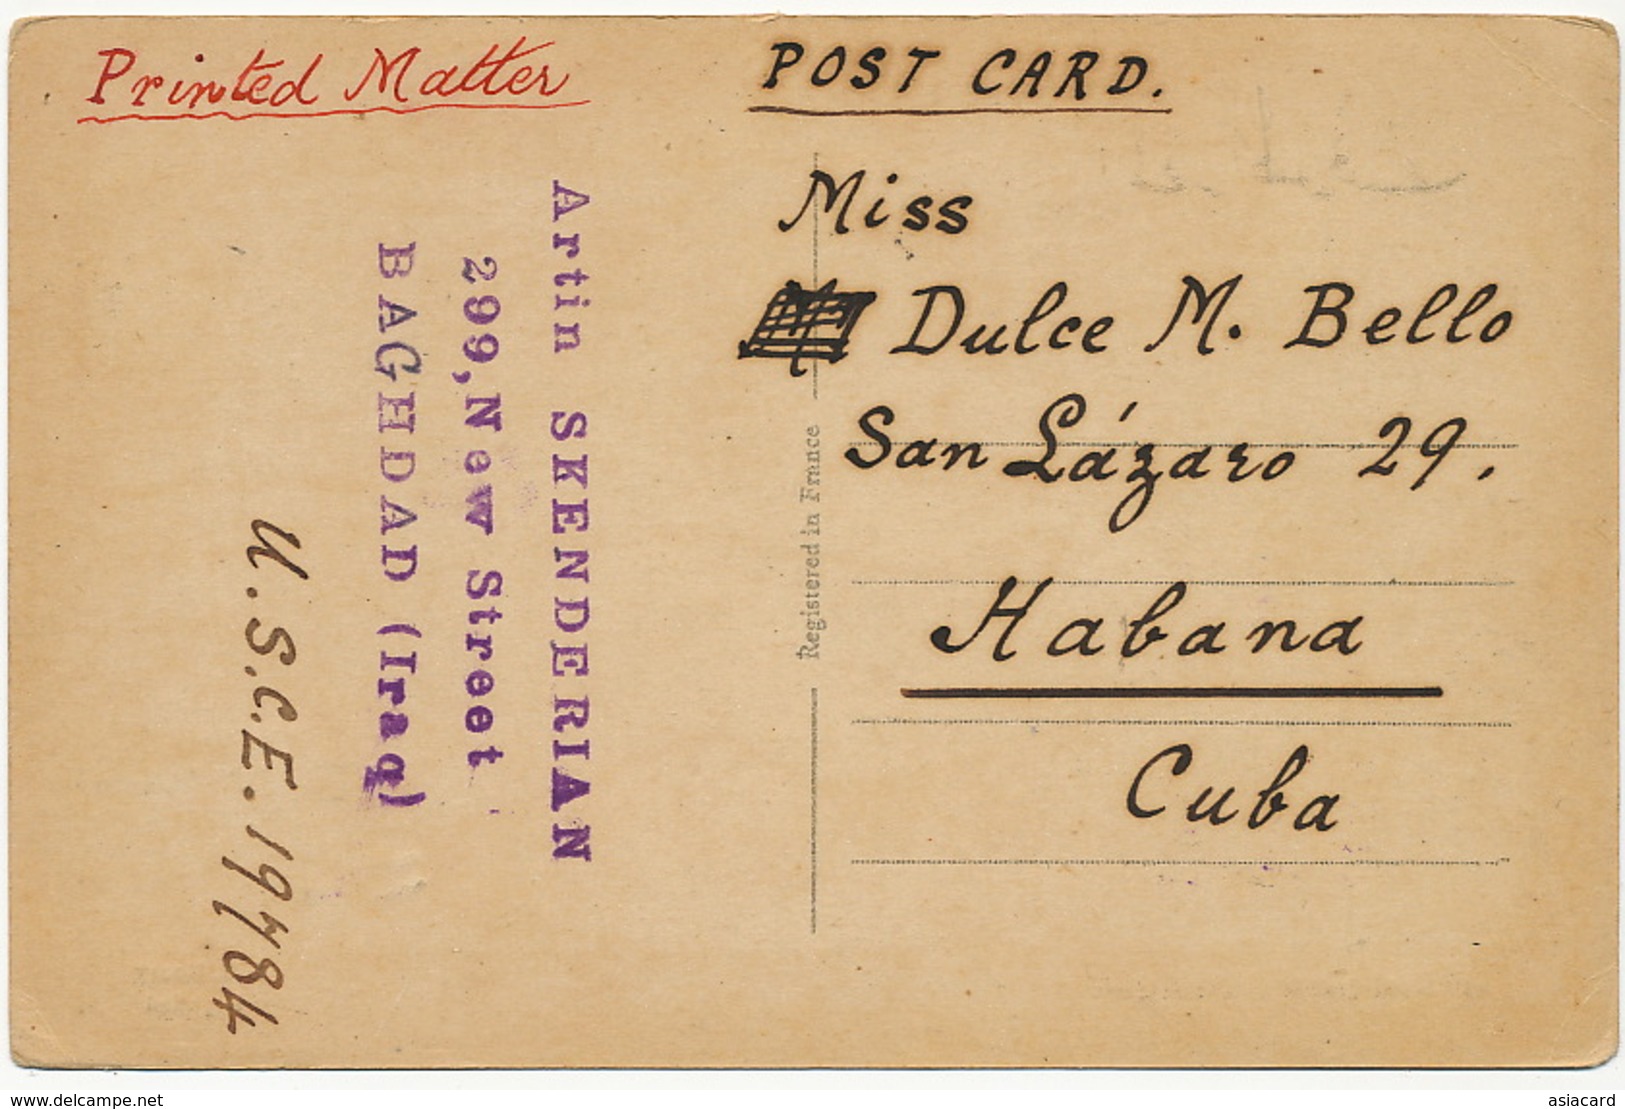 Printed Matter
POST CARD.
Miss
Dulce M. Bello
San Lázaro 29.
Habana
Cuba
Registered in France
Artin SKENDERIAN
299, New Street
BAGHDAD (Iraq)
U.S.C.E. 19784
www.delcampe.net
asiacard